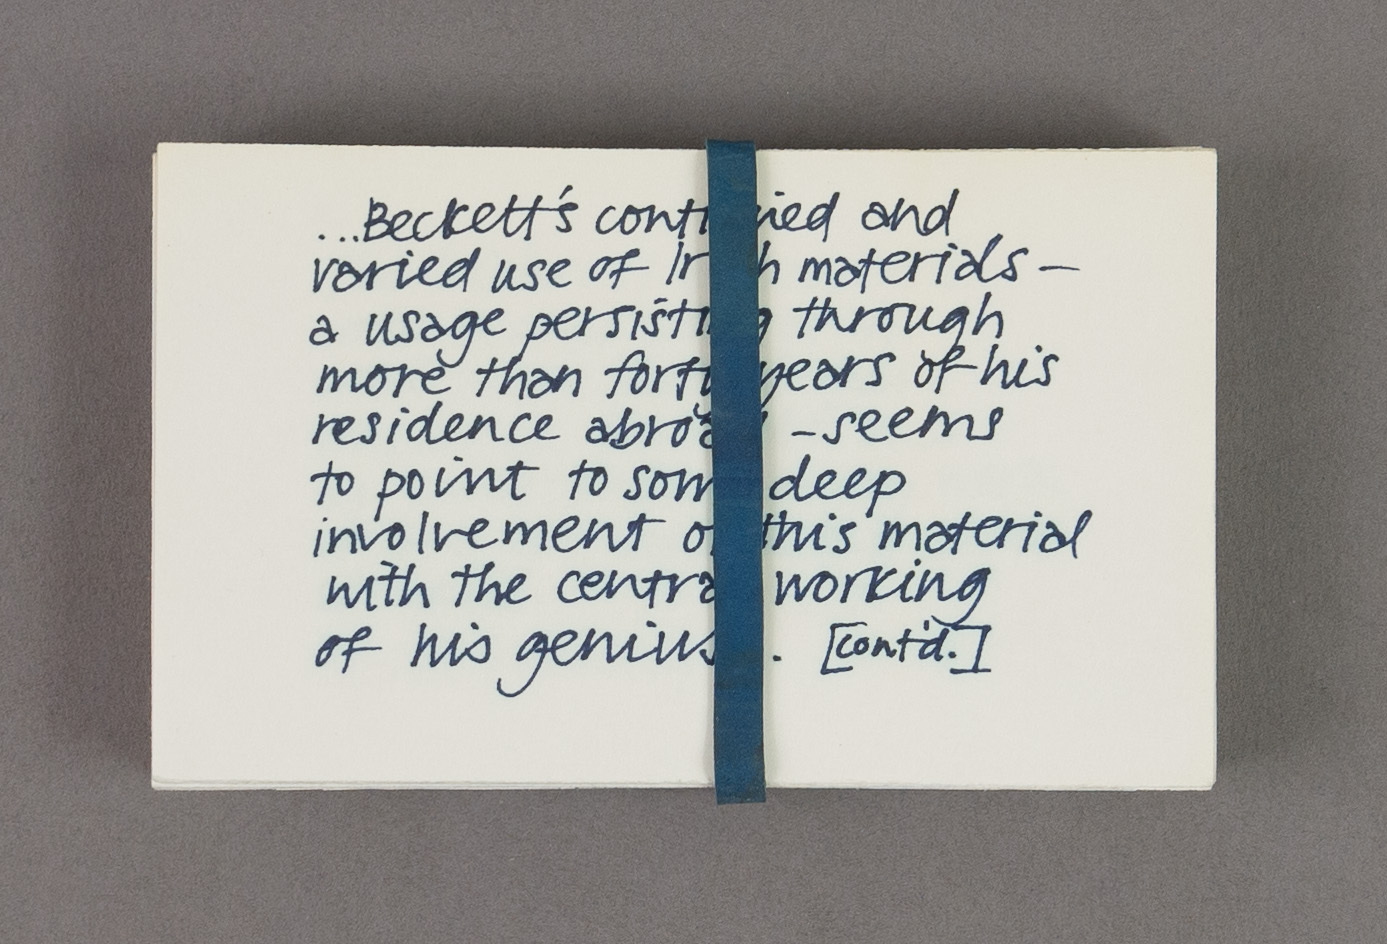 ...Beckett's continued and
varied use of Irish materials –
a usage persisting through
more than forty years of his
residence abroad – seems
to point to some deep
involvement of this material
with the central working
of his genius. [cont'd.]